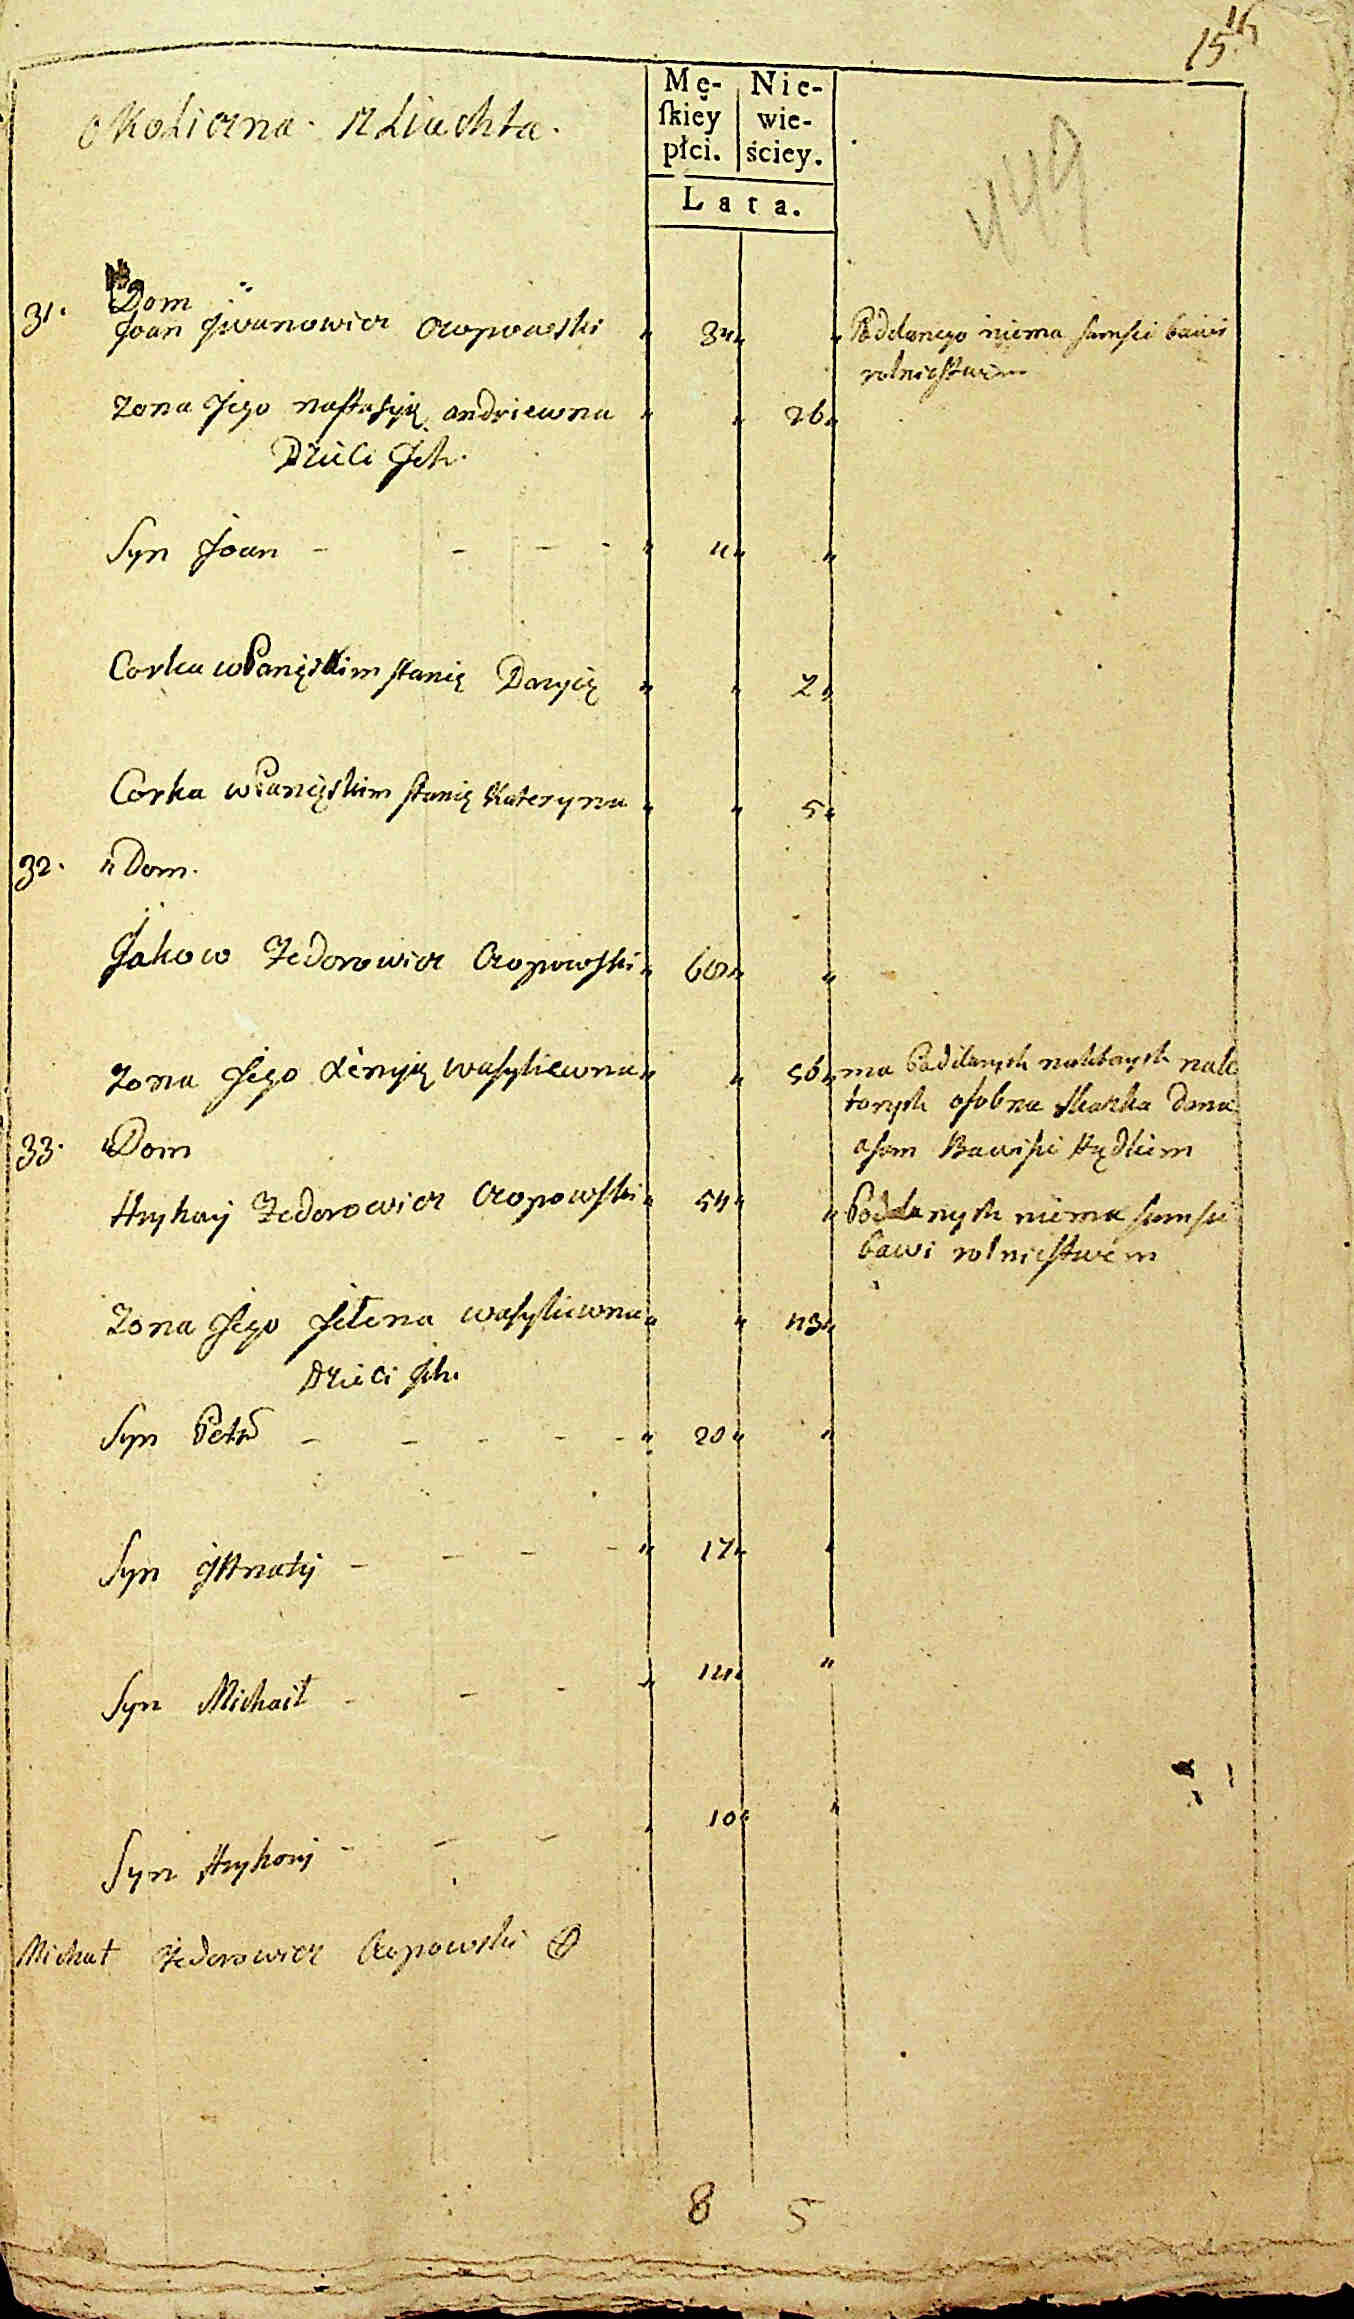 15 16
okoliczna szliachta.
Mę-
ſkiey
płci.
Nie-
wie-
ściey.
Lata.
449
31. Dom
Joan Jwanowicz Czopowski " 34 " " Poddanego niema samsie bawi
rolnictwem
Zona Jego nastasyię andriewna " " 26 "
Dzieci Jch.
Syn Joan - - - - " 4 " "
Corka wPanięskim stanię Daryię " " 7 "
Corka wPanięskim stanię Kateryna " " 5 "
32. " Dom.
Jakow Fedorowicz Czopowski " 60 " "
Zona Jego Xenyię wasyliewna " " 56 " ma Poddanych naktorych nak
torych osobna skazka dana
asam Bawisie
33. " Dom
Hryhory Fedorowicz Czopowski " 54 " " Poddanych niema samsie
bawi rolnictwem
Zona Jego Jelena wasyliewna " " 43 "
Dzieci Jch.
Syn Petr - - - - - " 20 " "
Syn Jhnaty - - - - " 17 " "
Syn Michail - - - " 14 " "
Syn Hryhory - - - 10 " "
Michał Fedorowicz Czopowski
8 5